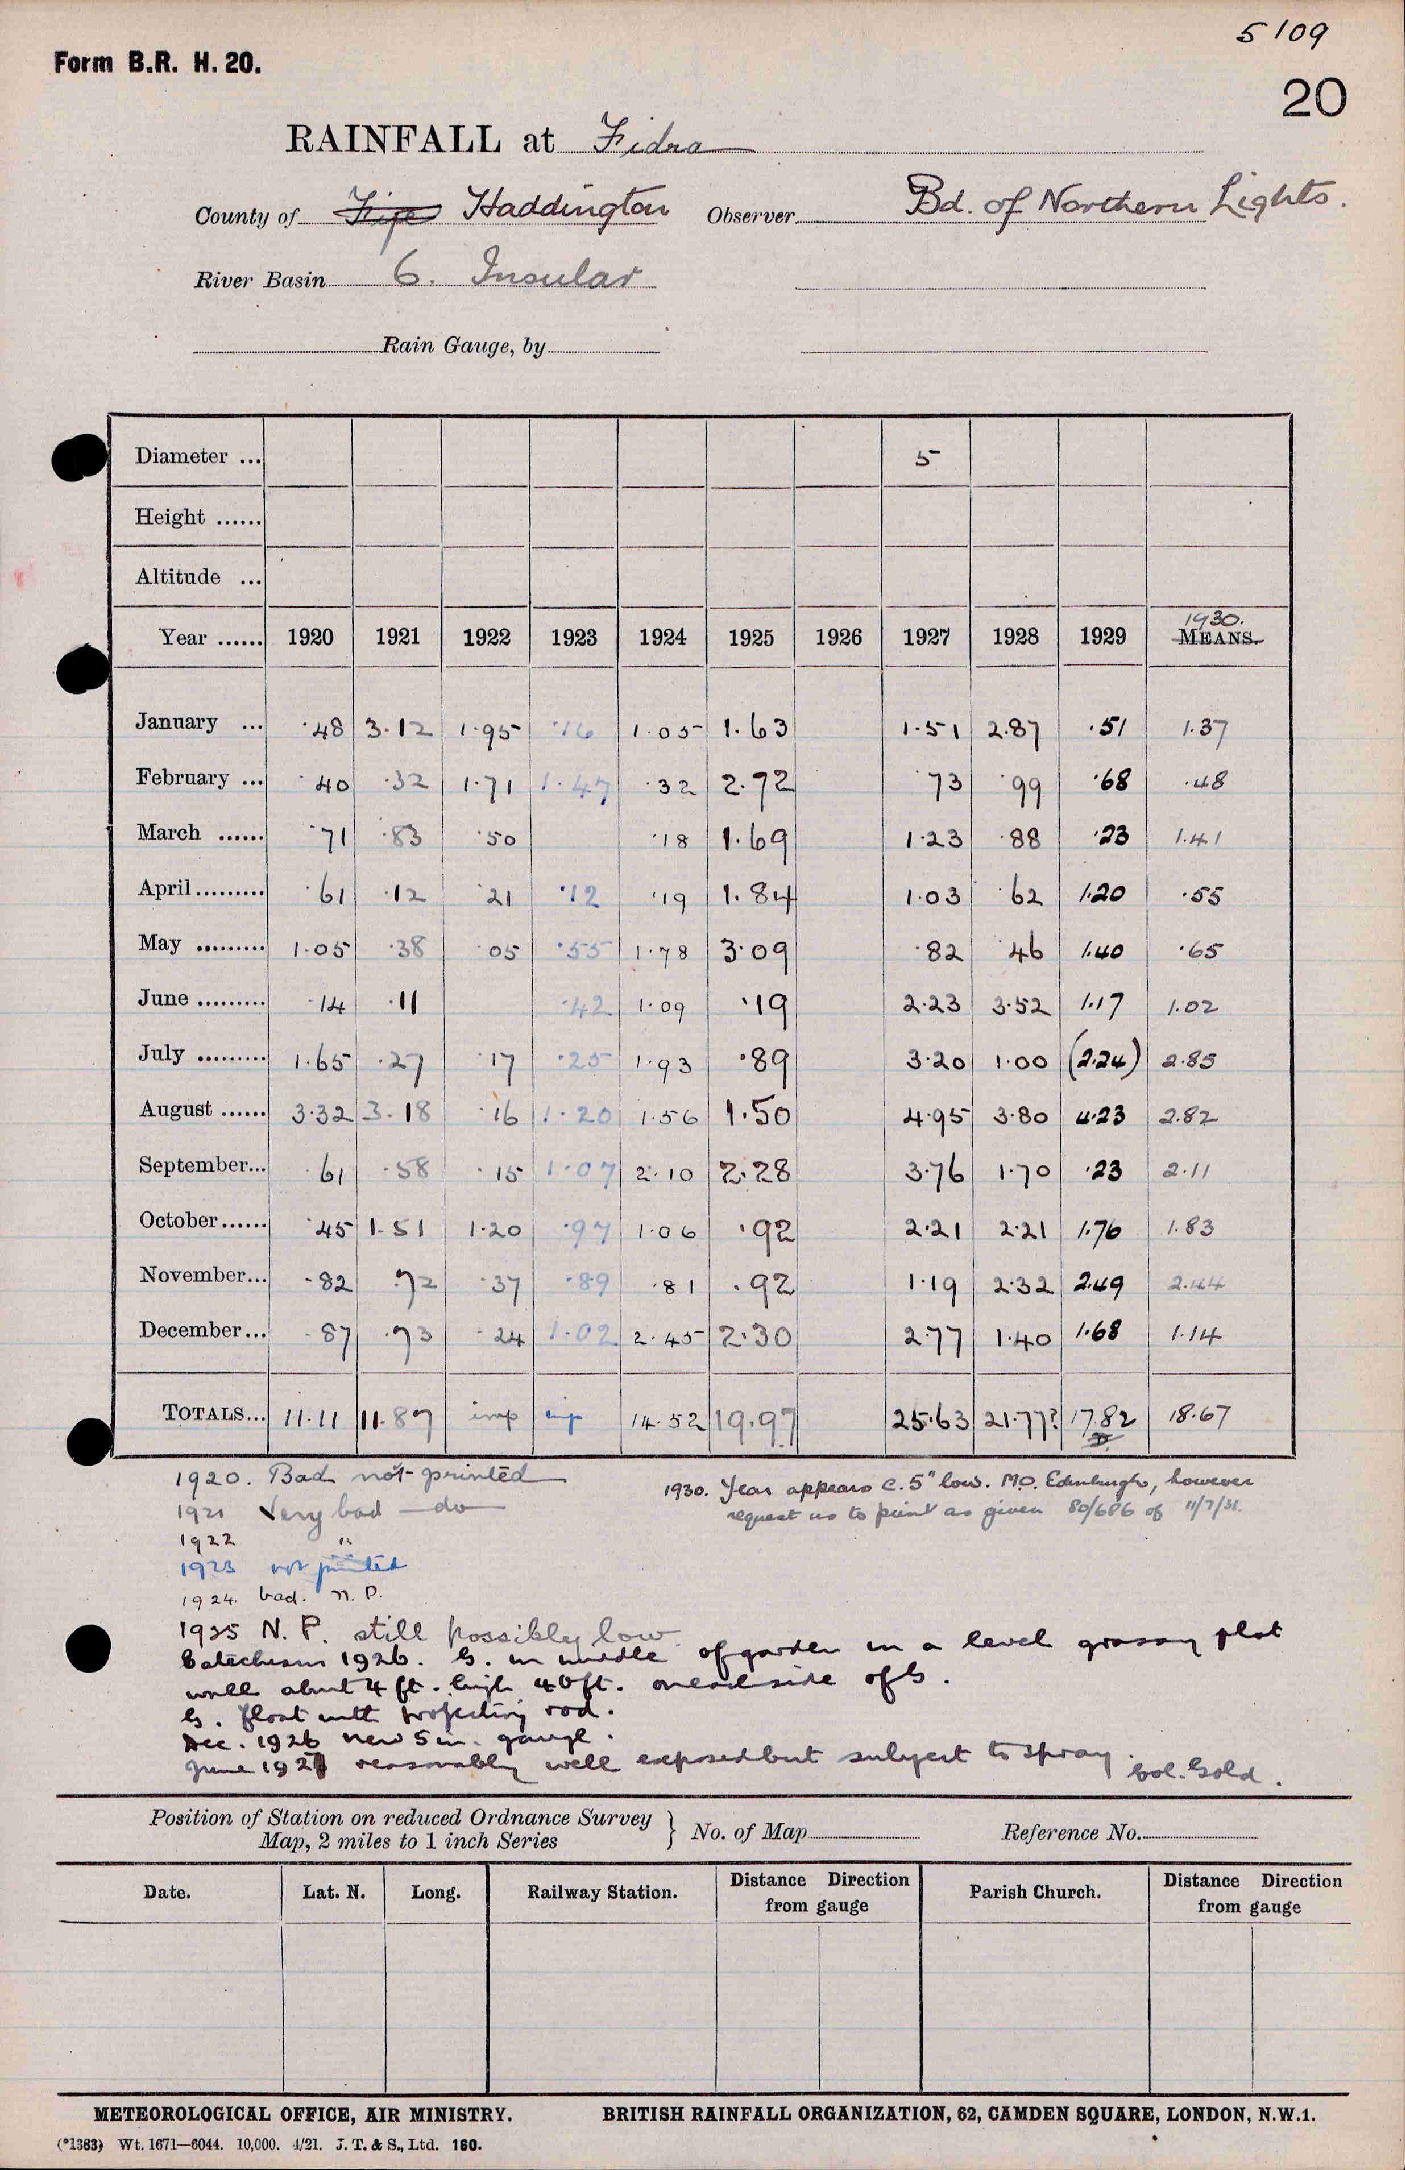 5109
Form B.R. H. 20.
20
RAINFALL at Fidra
County of Fife Haddington Observer Bd. of Northern Lights.
River Basin 6. Insular
Rain Gauge, by
Diameter ... 5
Height ......
Altitude ...
Year ...... 1920 1921 1922 1923 1924 1925 1926 1927 1928 1929 1930. MEANS.
January ... ·48 3·12 1·95 ·16 1·05 1·63 1·51 2·87 ·51 1·37
February ... ·40 ·32 1·71 1·47 ·32 2·72 ·73 ·99 ·68 ·48
March ...... ·71 ·83 ·50 ·18 1·69 1·23 ·88 ·23 1·41
April ......... ·61 ·12 ·21 ·12 ·19 1·84 1·03 ·62 1·20 ·55
May ......... 1·05 ·38 ·05 ·55 1·78 3·09 ·82 ·46 1·40 ·65
June ......... ·14 ·11 ·42 1·09 ·19 2·23 3·52 1·17 1·02
July ......... 1·65 ·27 ·17 ·25 1·93 ·89 3·20 1·00 (2·24) 2·85
August ...... 3·32 3·18 ·16 1·20 1·56 1·50 4·95 3·80 4·23 2·82
September... ·61 ·58 ·15 1·07 2·10 2·28 3·76 1·70 ·23 2·11
October...... ·45 1·51 1·20 ·97 1·06 ·92 2·21 2·21 1·76 1·83
November... ·82 ·72 ·37 ·89 ·81 ·92 1·19 2·32 2·49 2·44
December... ·87 ·73 ·24 1·02 2·45 2·30 2·77 1·40 1·68 1·14
TOTALS... 11·11 11·87 imp imp 14·52 19·97 25·63 21·77? 17·82 18·67
1920. Bad not printed
1921 Very bad —do—
1922 "
1923 not printed
1924. bad. N.P.
1925 N.P. still possibly low
1930. Year appears c. 5" low. M.O. Edinburgh, however
request us to print as given 80/686 of 11/7/31.
Catechism 1926. G. in middle of garden in a level grassy plot
wall about 4 ft. high 40 ft. on each side of G.
G. float with projecting rod.
Dec. 1926 new 5 in. gauge.
June 1927 reasonably well exposed but subject to spray. Col. Gold.
Position of Station on reduced Ordnance Survey
Map, 2 miles to 1 inch Series } No. of Map Reference No.
Date. Lat. N. Long. Railway Station. Distance Direction from gauge Parish Church. Distance Direction from gauge
METEOROLOGICAL OFFICE, AIR MINISTRY. BRITISH RAINFALL ORGANIZATION, 62, CAMDEN SQUARE, LONDON, N.W.1.
(*1383) Wt. 1671—6044. 10,000. 4/21. J. T. & S., Ltd. 160.